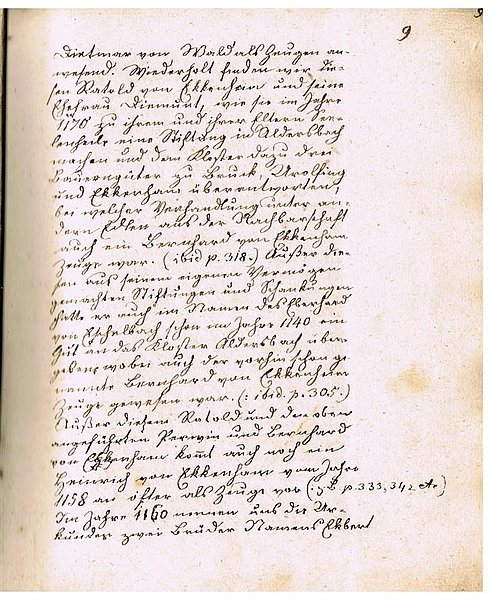 9
Dietmar von Wald als Zeugen an-
wesend. Wiederholt finden wir die-
sen Ratold von Ekkenham und seine
Ehefrau Diemunt, wie sie im Jahre
1170 zu ihrem und ihrer Eltern See-
lenheile eine Stiftung in Aldersbach
machen und dem Kloster dazu drei
Bauerngüter zu Bruck, Urolfing
und Ekkenham überantworten,
bei welcher Verhandlung unter an-
dern Edlen aus der Nachbarschaft
auch ein Bernhard von Ekkenham
Zeuge war. (ibid p. 318.) Außer die-
sen aus seinem eigenen Vermögen
gemachten Stiftungen und Schankungen
hatte er auch im Namen des Eberhard
von Eschelbach schon im Jahre 1140 ein
Gut an das Kloster Aldersbach über-
geben, wobei auch der vorhin schon ge-
nannte Bernhard von Ekkenham
Zeuge gewesen war. (: ibid. p. 305.)
Außer diesem Ratold und den oben
angeführten Perwin und Bernhard
von Ekkenham kommt auch noch ein
Heinrich von Ekkenham vom Jahre
1158 an öfter als Zeuge vor (: p. 333, 342
Im Jahre 1160 nennen uns die Ur-
kunden zwei Brüder Namens Ekbert